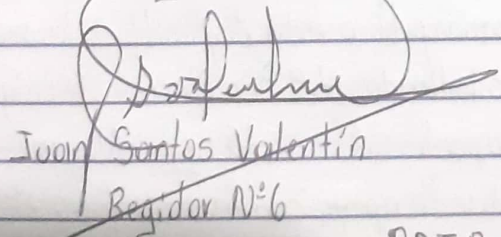 Juan Santos Valentín
Regidor Nº6